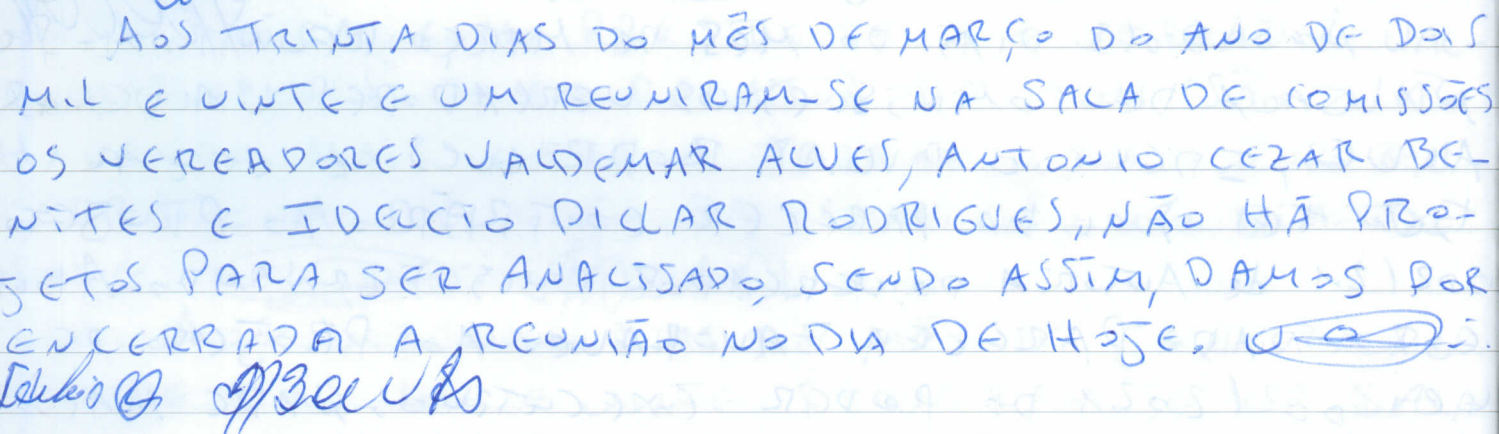 AOS TRINTA DIAS DO MÊS DE MARÇO DO ANO DE DOIS
MIL E VINTE E UM REUNIRAM-SE NA SALA DE COMISSÕES
OS VEREADORES VALDEMAR ALVES, ANTONIO CEZAR BE-
NITES E IDELCIO PILLAR RODRIGUES, NÃO HÁ PRO-
JETOS PARA SER ANALISADO, SENDO ASSIM, DAMOS POR
ENCERRADA A REUNIÃO NO DIA DE HOJE.